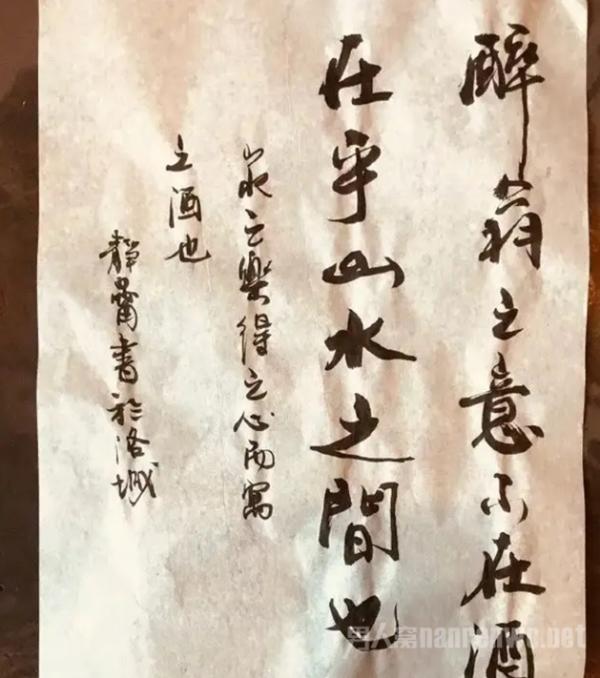 醉翁之意不在酒
在乎山水之間也
山水之樂得之心而寓
之酒也
靜蕾書於洛城
男人窝nanrenwo.net